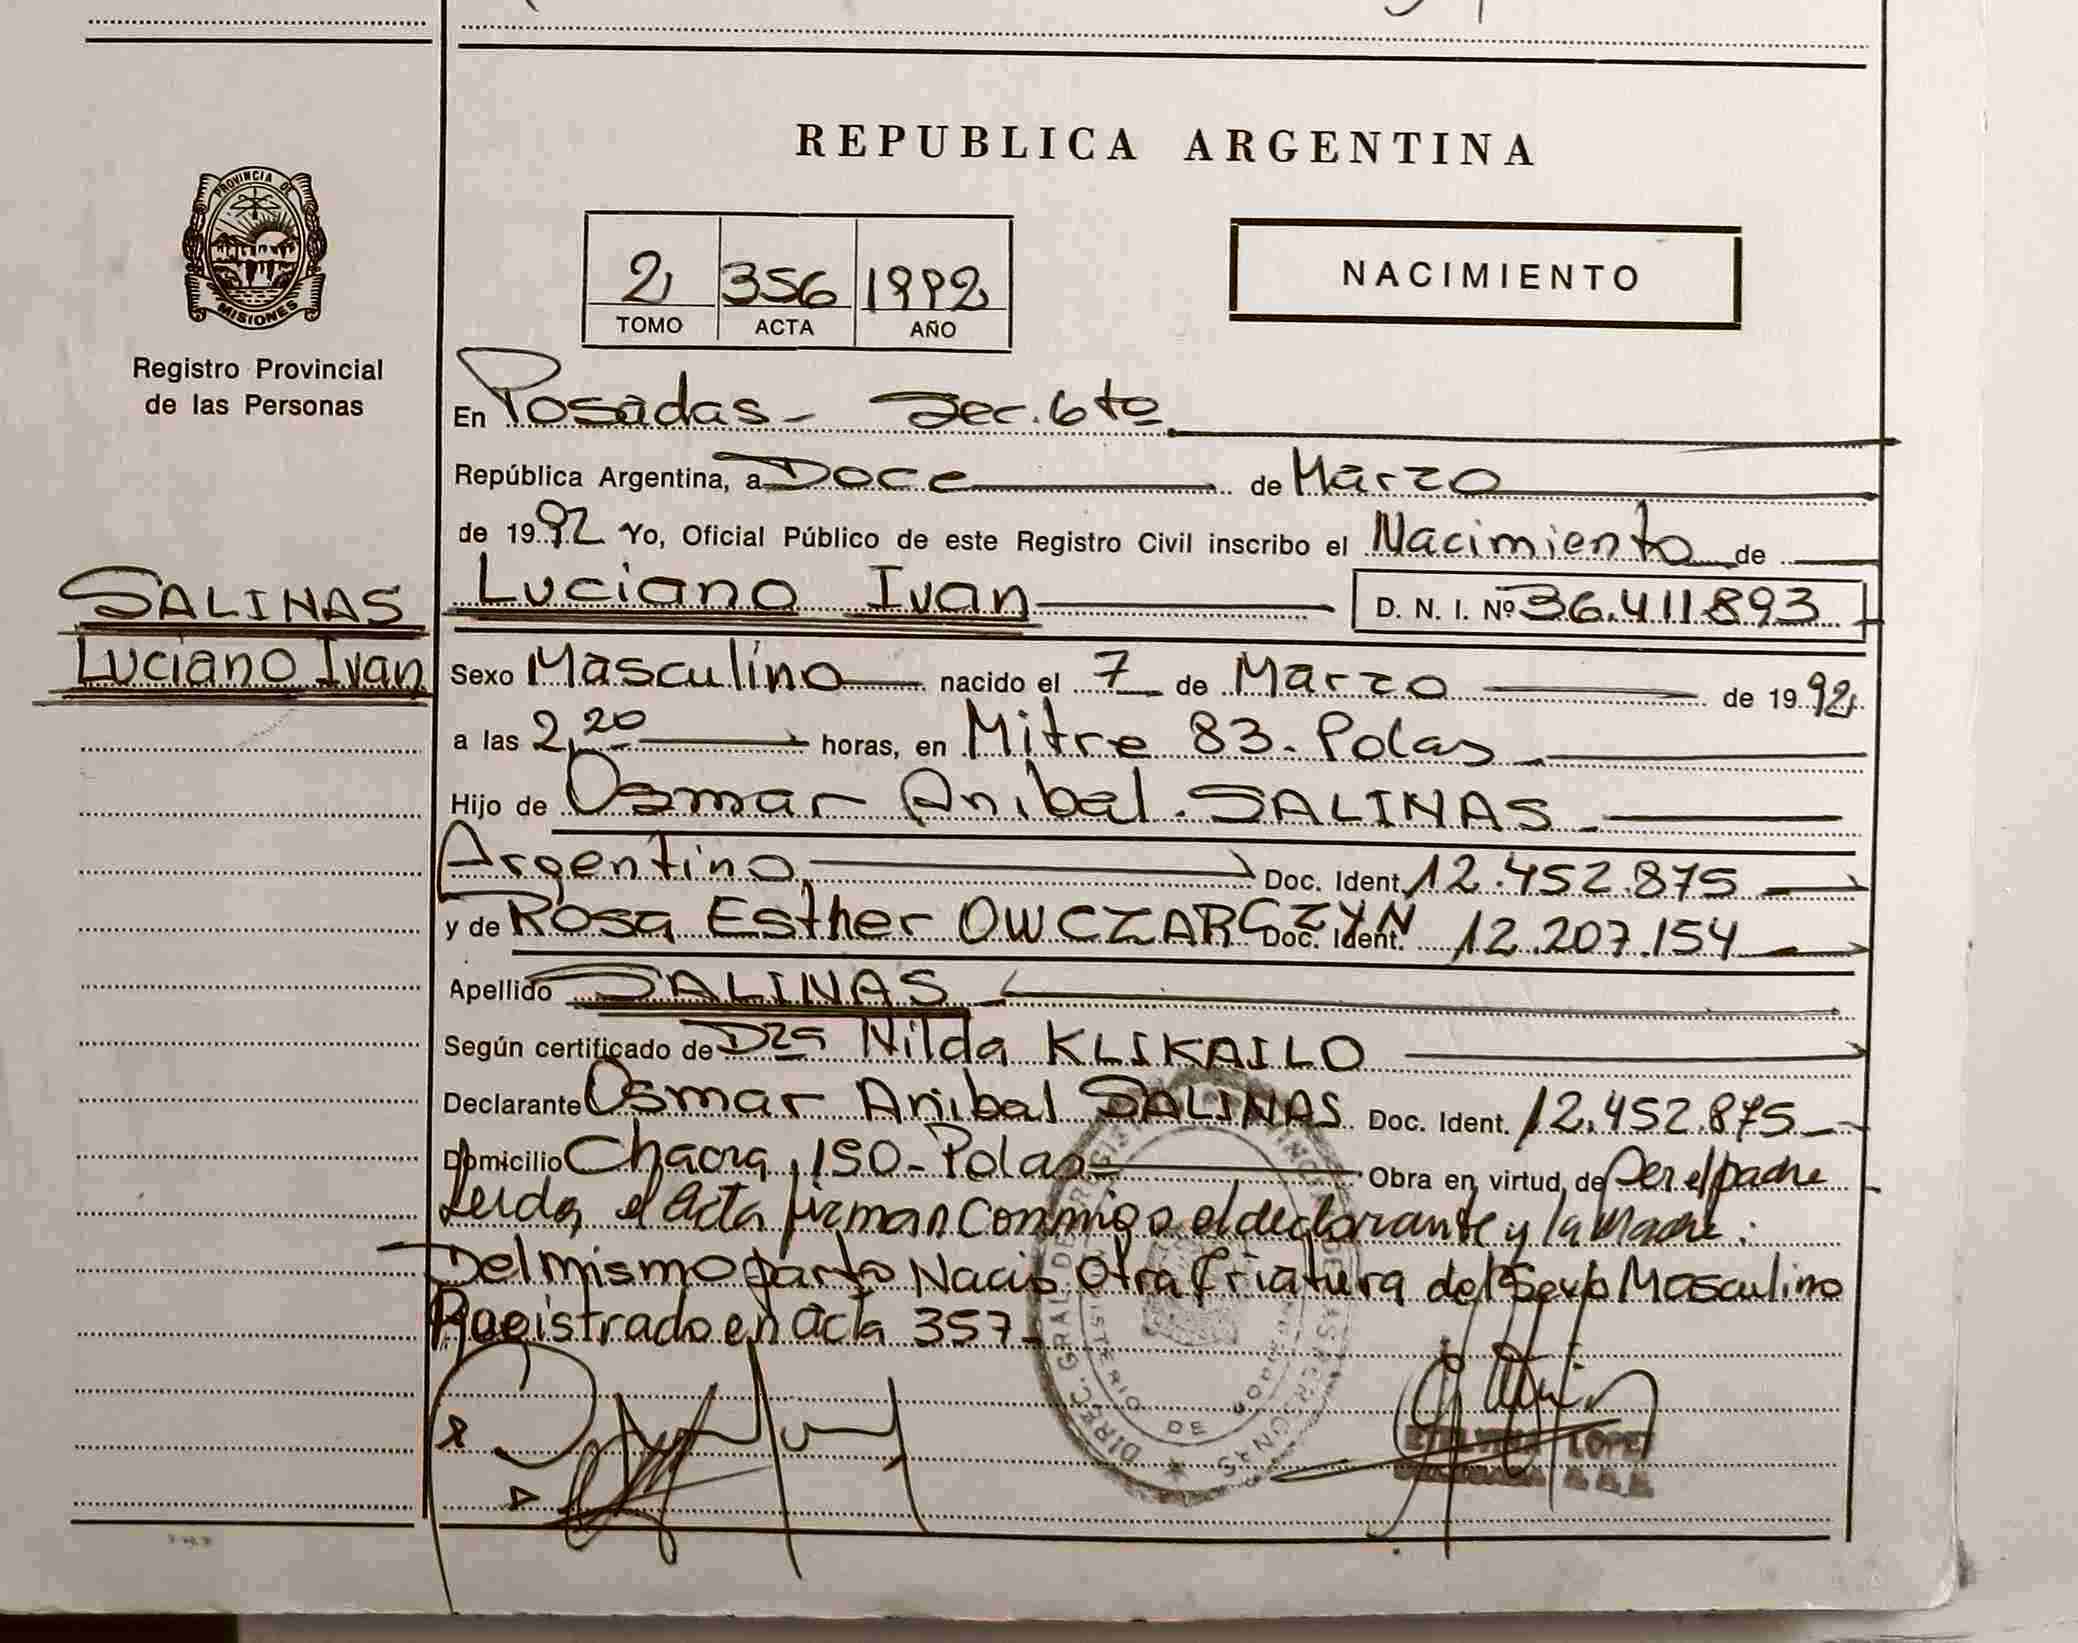 REPUBLICA ARGENTINA
PROVINCIA DE
MISIONES
Registro Provincial
de las Personas
2 356 1992
TOMO ACTA AÑO
NACIMIENTO
En Posadas - Sec. 6ta
República Argentina, a Doce de Marzo
de 1992 Yo, Oficial Público de este Registro Civil inscribo el Nacimiento de
SALINAS
Luciano Ivan
Luciano Ivan D. N. I. Nº 36.411.893
Sexo Masculino nacido el 7 de Marzo de 1992
a las 2,20 horas, en Mitre 83 - Pdas
Hijo de Osmar Anibal SALINAS
Argentino Doc. Ident. 12.452.875
y de Rosa Esther OWCZARCZYN Doc. Ident. 12.207.154
Apellido SALINAS
Según certificado de Dra Nilda KLIKAILO
Declarante Osmar Anibal SALINAS Doc. Ident. 12.452.875
Domicilio Chacra 150 - Pdas Obra en virtud de ser el padre
Leida el Acta firman Conmigo el declarante y la Madre.
Del mismo parto Nacio Otra Criatura del Sexo Masculino
Registrado en acta 357-
DIREC. GRAL. DE
DE
LOPEZ